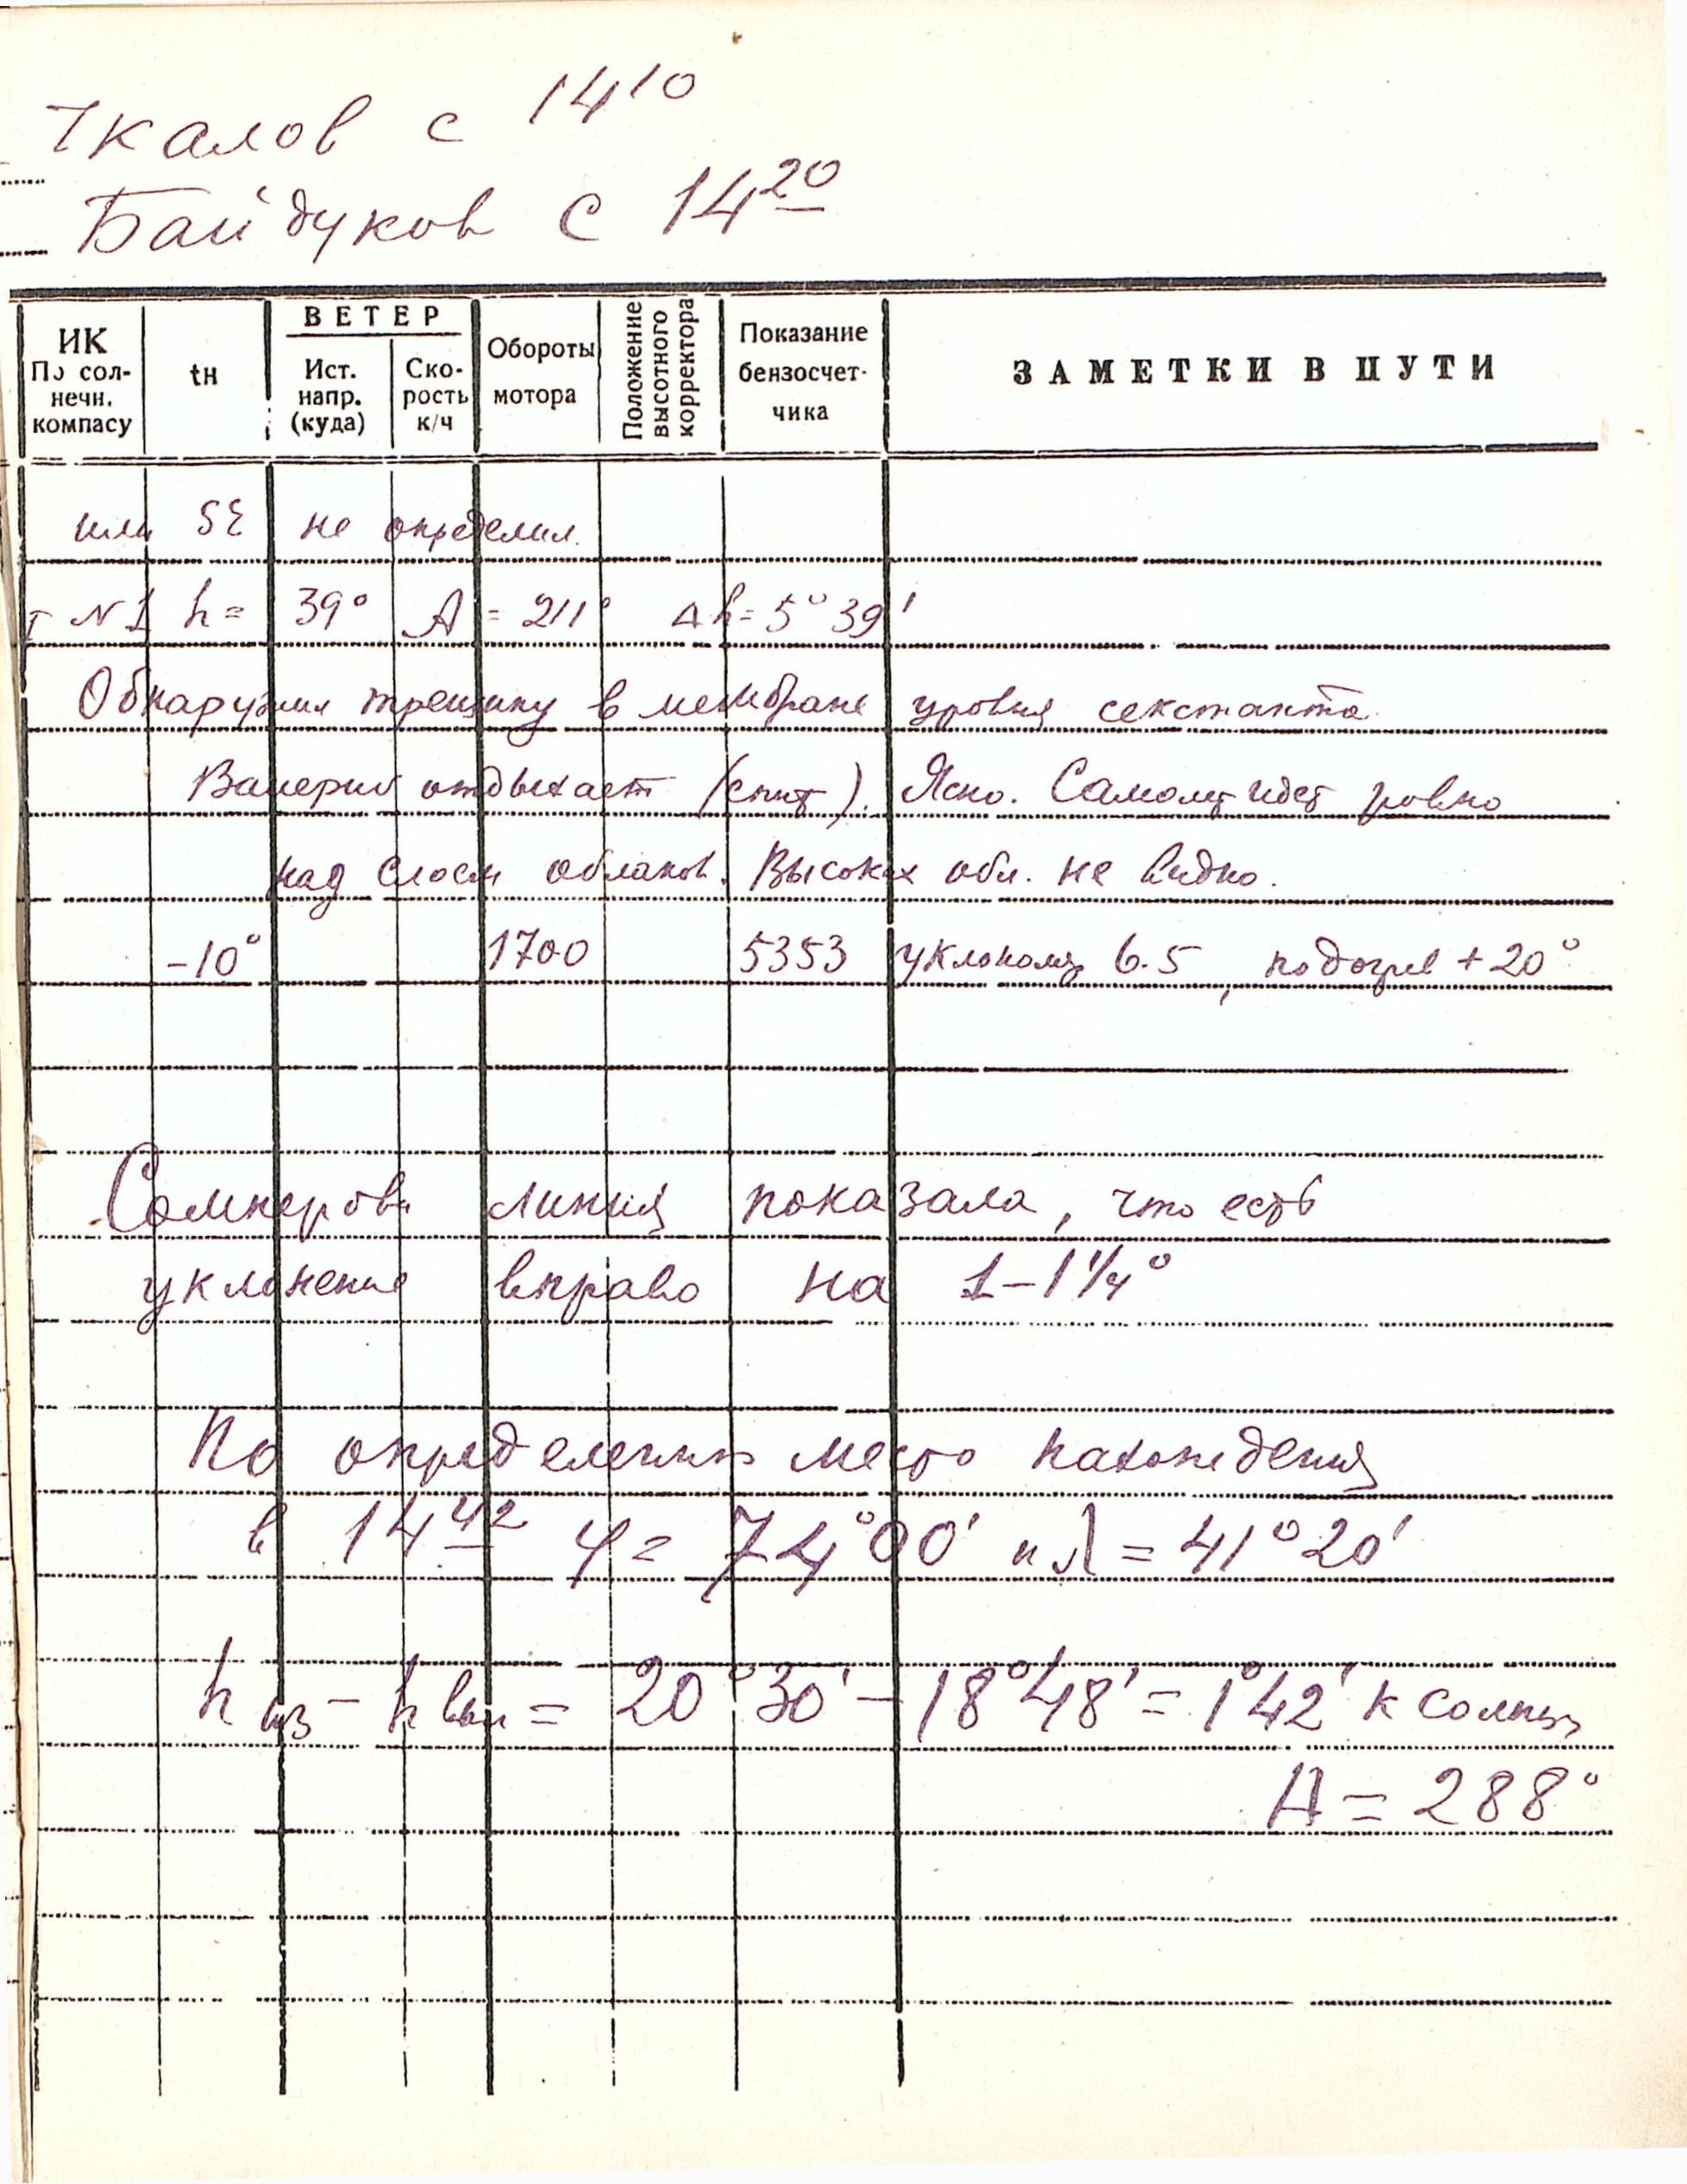 Чкалов с 14 10
Байдуков с 14 20
ИК По сол- нечн. компасу
tн
ВЕТЕР
Ист. напр. (куда)
Ско- рость к/ч
Обороты мотора
Положение высотного корректора
Показание бензосчет- чика
ЗАМЕТКИ В ПУТИ
или SE не определил.
N 1 h = 39° A = 211° Δh = 5° 39'
Обнаружил трещину в мембране уровня секстанта.
Валерий отдыхает (спит). Ясно. Самолет идет ровно
над слоем облаков. Высоких обл. не видно.
-10° 1700 5353 уклономер 6.5, подогрев +20°
Сомнерова линия показала, что есть
уклонение вправо на 1-1 1/4°
По определению место нахождения
в 14 42 φ = 74°00' и λ = 41°20'
h из - h выч = 20°30' - 18°48' = 1°42' к солнцу
A = 288°